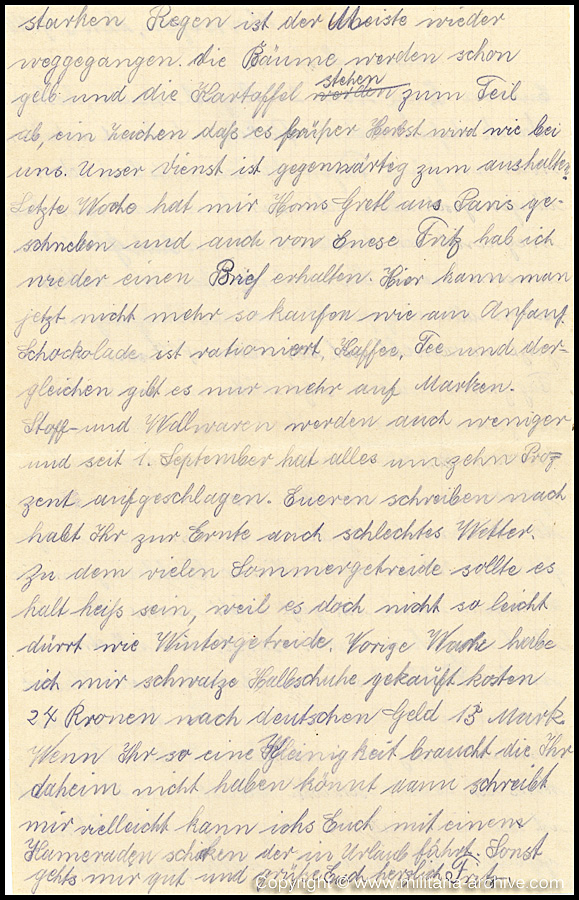 starken Regen ist der Meiste wieder
weggegangen. die Bäume werden schon
gelb und die Kartoffel werden stehen zum Teil
ab, ein Zeichen daß es früher Herbst wird wie bei
uns. Unser Dienst ist gegenwärteg zum aushalten.
Letzte Woche hat mir Hans Gretl aus Paris ge-
schrieben und auch von Enese Fritz hab ich
wieder einen Brief erhalten. Hier kann man
jetzt nicht mehr so kaufen wie am Anfang.
Schockolade ist rationiert, Kaffee, Tee und der-
gleichen gibt es nur mehr auf Marken.
Stoff- und Wollwaren werden auch weniger
und seit 1. September hat alles um zehn Proz-
zent aufgeschlagen. Eueren schreiben nach
habt Ihr zur Ernte auch schlechtes Wetter.
Zu dem vielen Sommergetreide sollte es
halt heiß sein, weil es doch nicht so leicht
dürrt wie Wintergetreide. Vorige Woche habe
ich mir schwatze Halbschuhe gekauft kosten
24 Kronen nach deutschen Geld 15 Mark.
Wenn Ihr so eine Kleinigkeit braucht die Ihr
daheim nicht haben könnt dann schreibt
mir vielleicht kann ichs Euch mit einem
Kameraden schicken der in Urlaub fährt. Sonst
gehts mir gut und grüße Euch herzlich Fritz
Copyright © www.militaria-archive.com